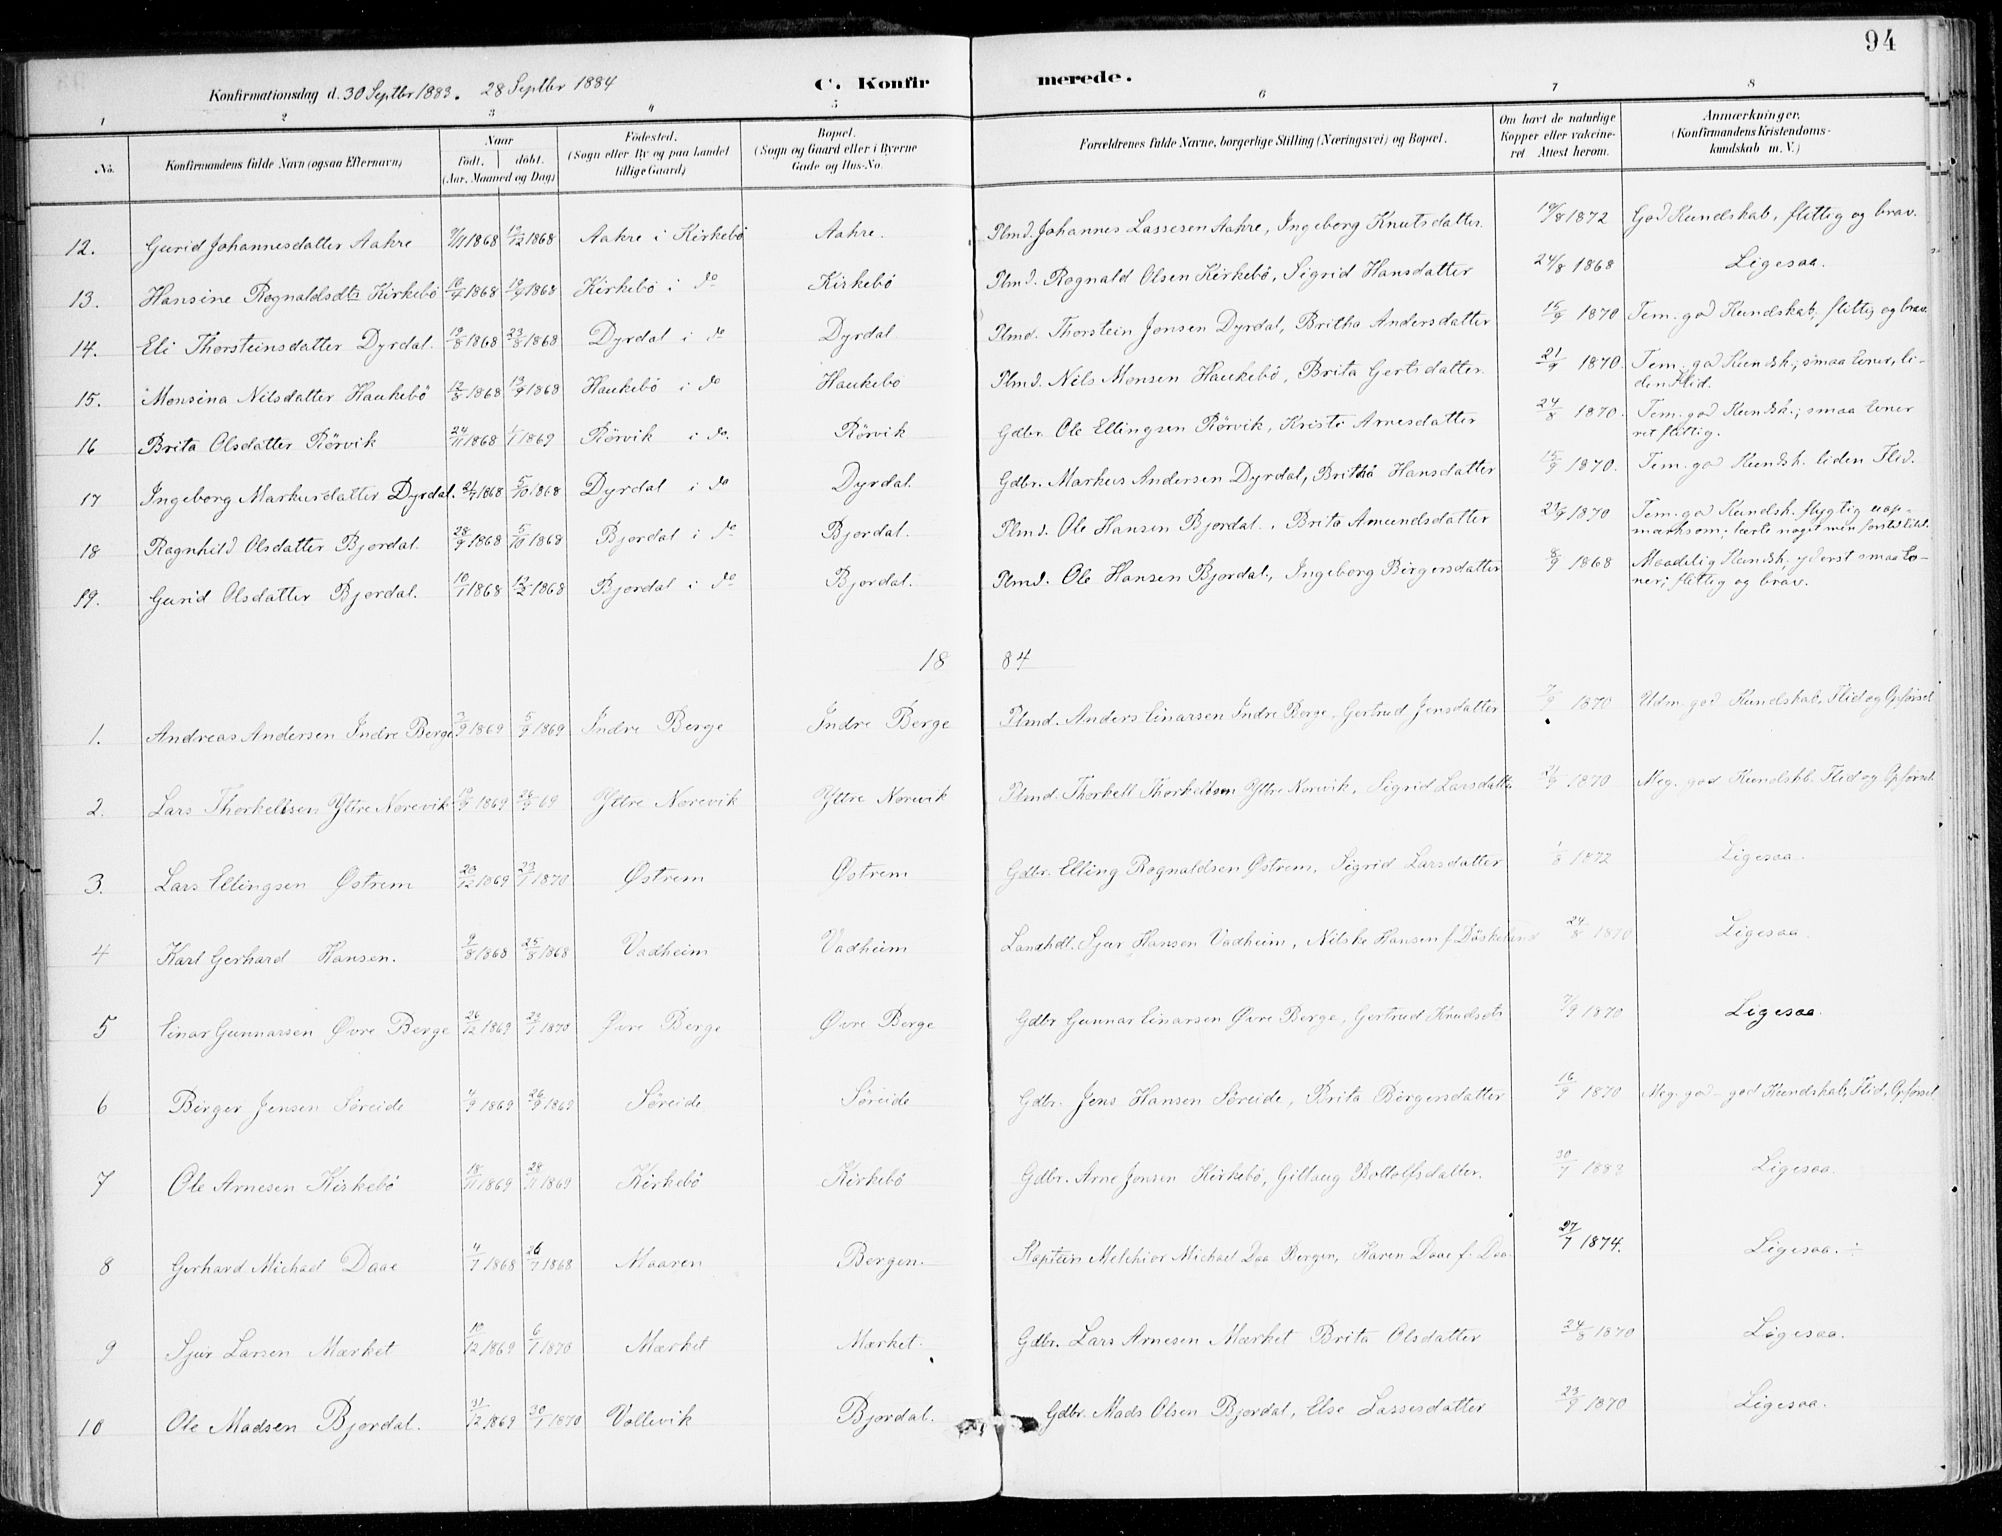 94
Konfirmationsdag d. 30 Septbr 1883. 28 Septbr 1884 C. Konfir merede.
1 2 3 4 5 6 7 8
No. Konfirmandens fulde Navn (ogsaa Efternavn) Naar födt, döbt. (Aar, Maaned og Dag) Födested. (Sogn eller By og paa Landet tillige Gaard) Bopæl. (Sogn og Gaard eller i Byerne Gade og Hus-No. Forældrenes fulde Navne, borgerlige Stilling (Næringsvei) og Bopæl. Om havt de naturlige Kopper eller vakcineret Attest herom. Anmærkninger. (Konfirmandens Kristendomskundskab m. V.)
12. Gurid Johannesdatter Aahre 1868 1868 Aahre i Kirkebö Aahre. Plmd. Johannes Lassesen Aahre, Ingeborg Knutsdatter 19/8 1872 God Kundskab, flittig og brav.
13. Hansine Rognaldsdtr Kirkebö 1868 1868 Kirkebö i do Kirkebö Plmd. Rognald Olsen Kirkebö, Sigrid Hansdatter 24/8 1868 Ligesaa.
14. Eli Thorsteinsdatter Dyrdal. 19/8 1868 23/8 1868 Dyrdal i do Dyrdal Plmd. Thorstein Jonsen Dyrdal, Britha Andersdatter 15/9 1870 Tem. god Kundskab, flittig og brav.
15. Monsina Nilsdatter Haukebö 12/8 1868 13/9 1868 Haukebö i do Haukebö Plmd. Nils Monsen Haukebö, Brita Gertsdatter. 21/9 1870. Tem. god Kundsk; smaa Evner, liden Flid.
16 Brita Olsdatter Rörvik 24/11 1868 1/1 1869 Rörvik i do. Rörvik Gdbr. Ole Ellingsen Rörvik, Kristi Arnesdatter 24/8 1870. Tem. god Kundsk.; smaa Evner ret flittig.
17 Ingeborg Markusdatter Dyrdal. 1868 5/10 1868 Dyrdal i do Dyrdal. Gdbr. Markus Andersen Dyrdal, Britha Hansdatter 15/9 1870. Tem. god Kundsk. liden Flid.
18 Ragnhild Olsdatter Bjordal. 28/9 1868 5/10 1868 Bjordal i do Bjordal. Plmd. Ole Hansen Bjordal., Brita Amundsdatter 21/9 1870 Tem. god Kundsk. flygtig uopmærksom; lærte noget men forstod lidt.
19. Gurid Olsdatter Bjordal. 10/1 1868 1868 Bjordal i do Bjordal. Plmd. Ole Hansen Bjordal., Ingeborg Birgersdatter 8/9 1868 Maadelig Kundsk. yderst smaa Evner; flittig og brav.
18 84
1. Andreas Andersen Indre Berge 3/9 1869 5/9 1869 Indre Berge Indre Berge Plmd. Anders Einarsen Indre Berge, Gertrud Jensdatter 7/9 1870 Udm. god Kundskab, Flid og Opførsel
2. Lars Thorkellsen Yttre Norevik 1869 26/9 69 Yttre Norevik Yttre Norevik Plmd. Thorkell Thorkellsen Yttre Norvik, Sigrid Larsdatter 21/9 1870 Meg. god Kundskb. Flid og Opførsel
3. Lars Ellingsen Østrem 20/12 1869 23/1 1870 Østrem Østrem Gdbr. Elling Rognaldsen Østrem, Sigrid Larsdatter 1/8 1872 Ligesaa.
4 Karl Gerhard Hansen. 9/8 1868 25/8 1868 Vadheim Vadheim Landhdl. Sjur Hansen Vadheim, Nilske Hansen f. Döskeland 24/8 1870 Ligesaa.
5 Einar Gunnarsen Øvre Berge 26/12 1869 23/1 1870 Øvre Berge Øvre Berge Gdbr Gunnar Einarsen Øvre Berge, Gertrud Knudsdtr 7/9 1870 Ligesaa.
6 Birger Jensen Søreide 4/9 1869 26/9 1869 Søreide Søreide Gdbr. Jens Hansen Søreide, Brita Birgersdatter 16/9 1870 Meg. god - god Kundskab, Flid, Opførsel
7 Ole Arnesen Kirkebö 18/11 1869 28/11 1869 Kirkebö Kirkebö Gdbr. Arne Jonsen Kirkebö, Gitlaug Bottolfsdatter. 30/7 1883 Ligesaa.
8 Gerhard Michael Daae 4/7 1868 26/7 1868 Maaren Bergen. Kaptein Melchior Michael Daa Bergen, Karen Daae f. Daa. 27/7 1874. Ligesaa. ÷
9 Sjur Larsen Mærket 10/12 1869 6/1 1870 Mærket Mærket. Gdbr. Lars Arnesen Mærket Brita Olsdatter 24/8 1870 Ligesaa.
10 Ole Madsen Bjordal. 31/12 1869 30/1 1870 Vollevik Bjordal. Gdbr. Mads Olsen Bjordal, Else Lassesdatter 23/9 1870 Ligesaa.